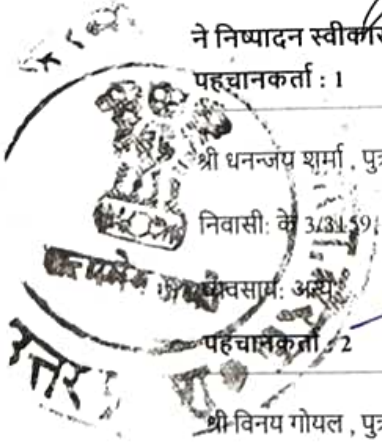 ने निष्पादन स्वीकार
पहचानकर्ता : 1
श्री धनन्जय शर्मा , पुत्र
निवासी: के 3/3159,
व्यवसाय: अन्य
पहचानकर्ता : 2
श्री विनय गोयल , पुत्र
सत्यमेव जयते
उत्तर